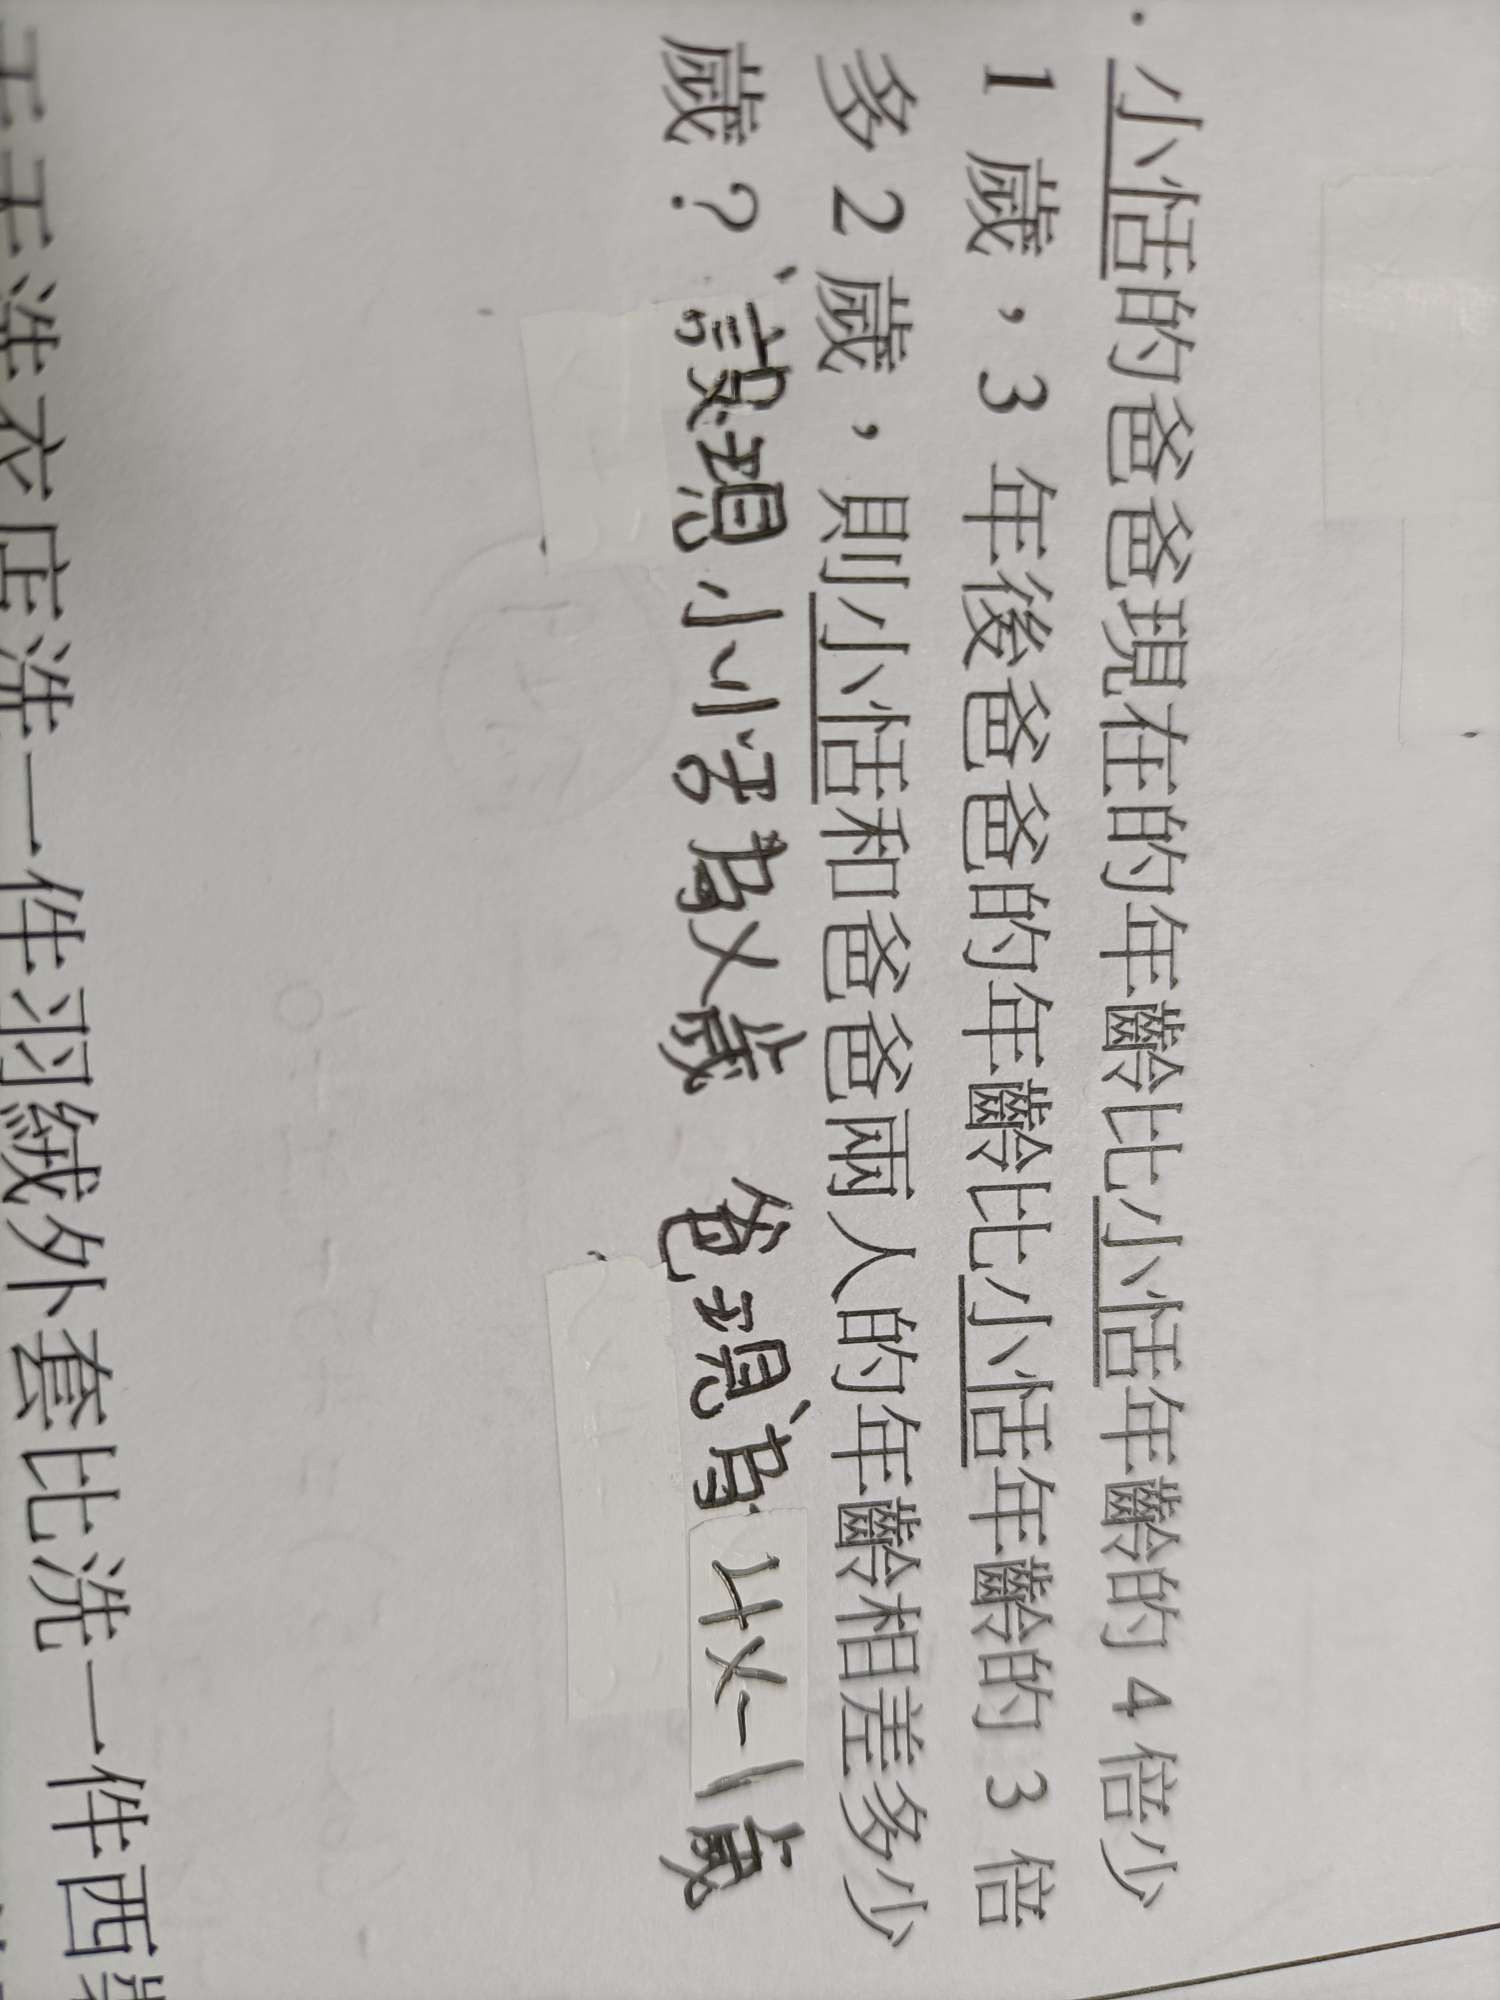 . 小恬的爸爸現在的年齡比小恬年齡的 4 倍少
1 歲，3 年後爸爸的年齡比小恬年齡的 3 倍
多 2 歲，則小恬和爸爸兩人的年齡相差多少
歲？設現小小 為 x 歲 爸現為 4x-1歲
洗衣店洗一件羽絨外套比洗一件西裝